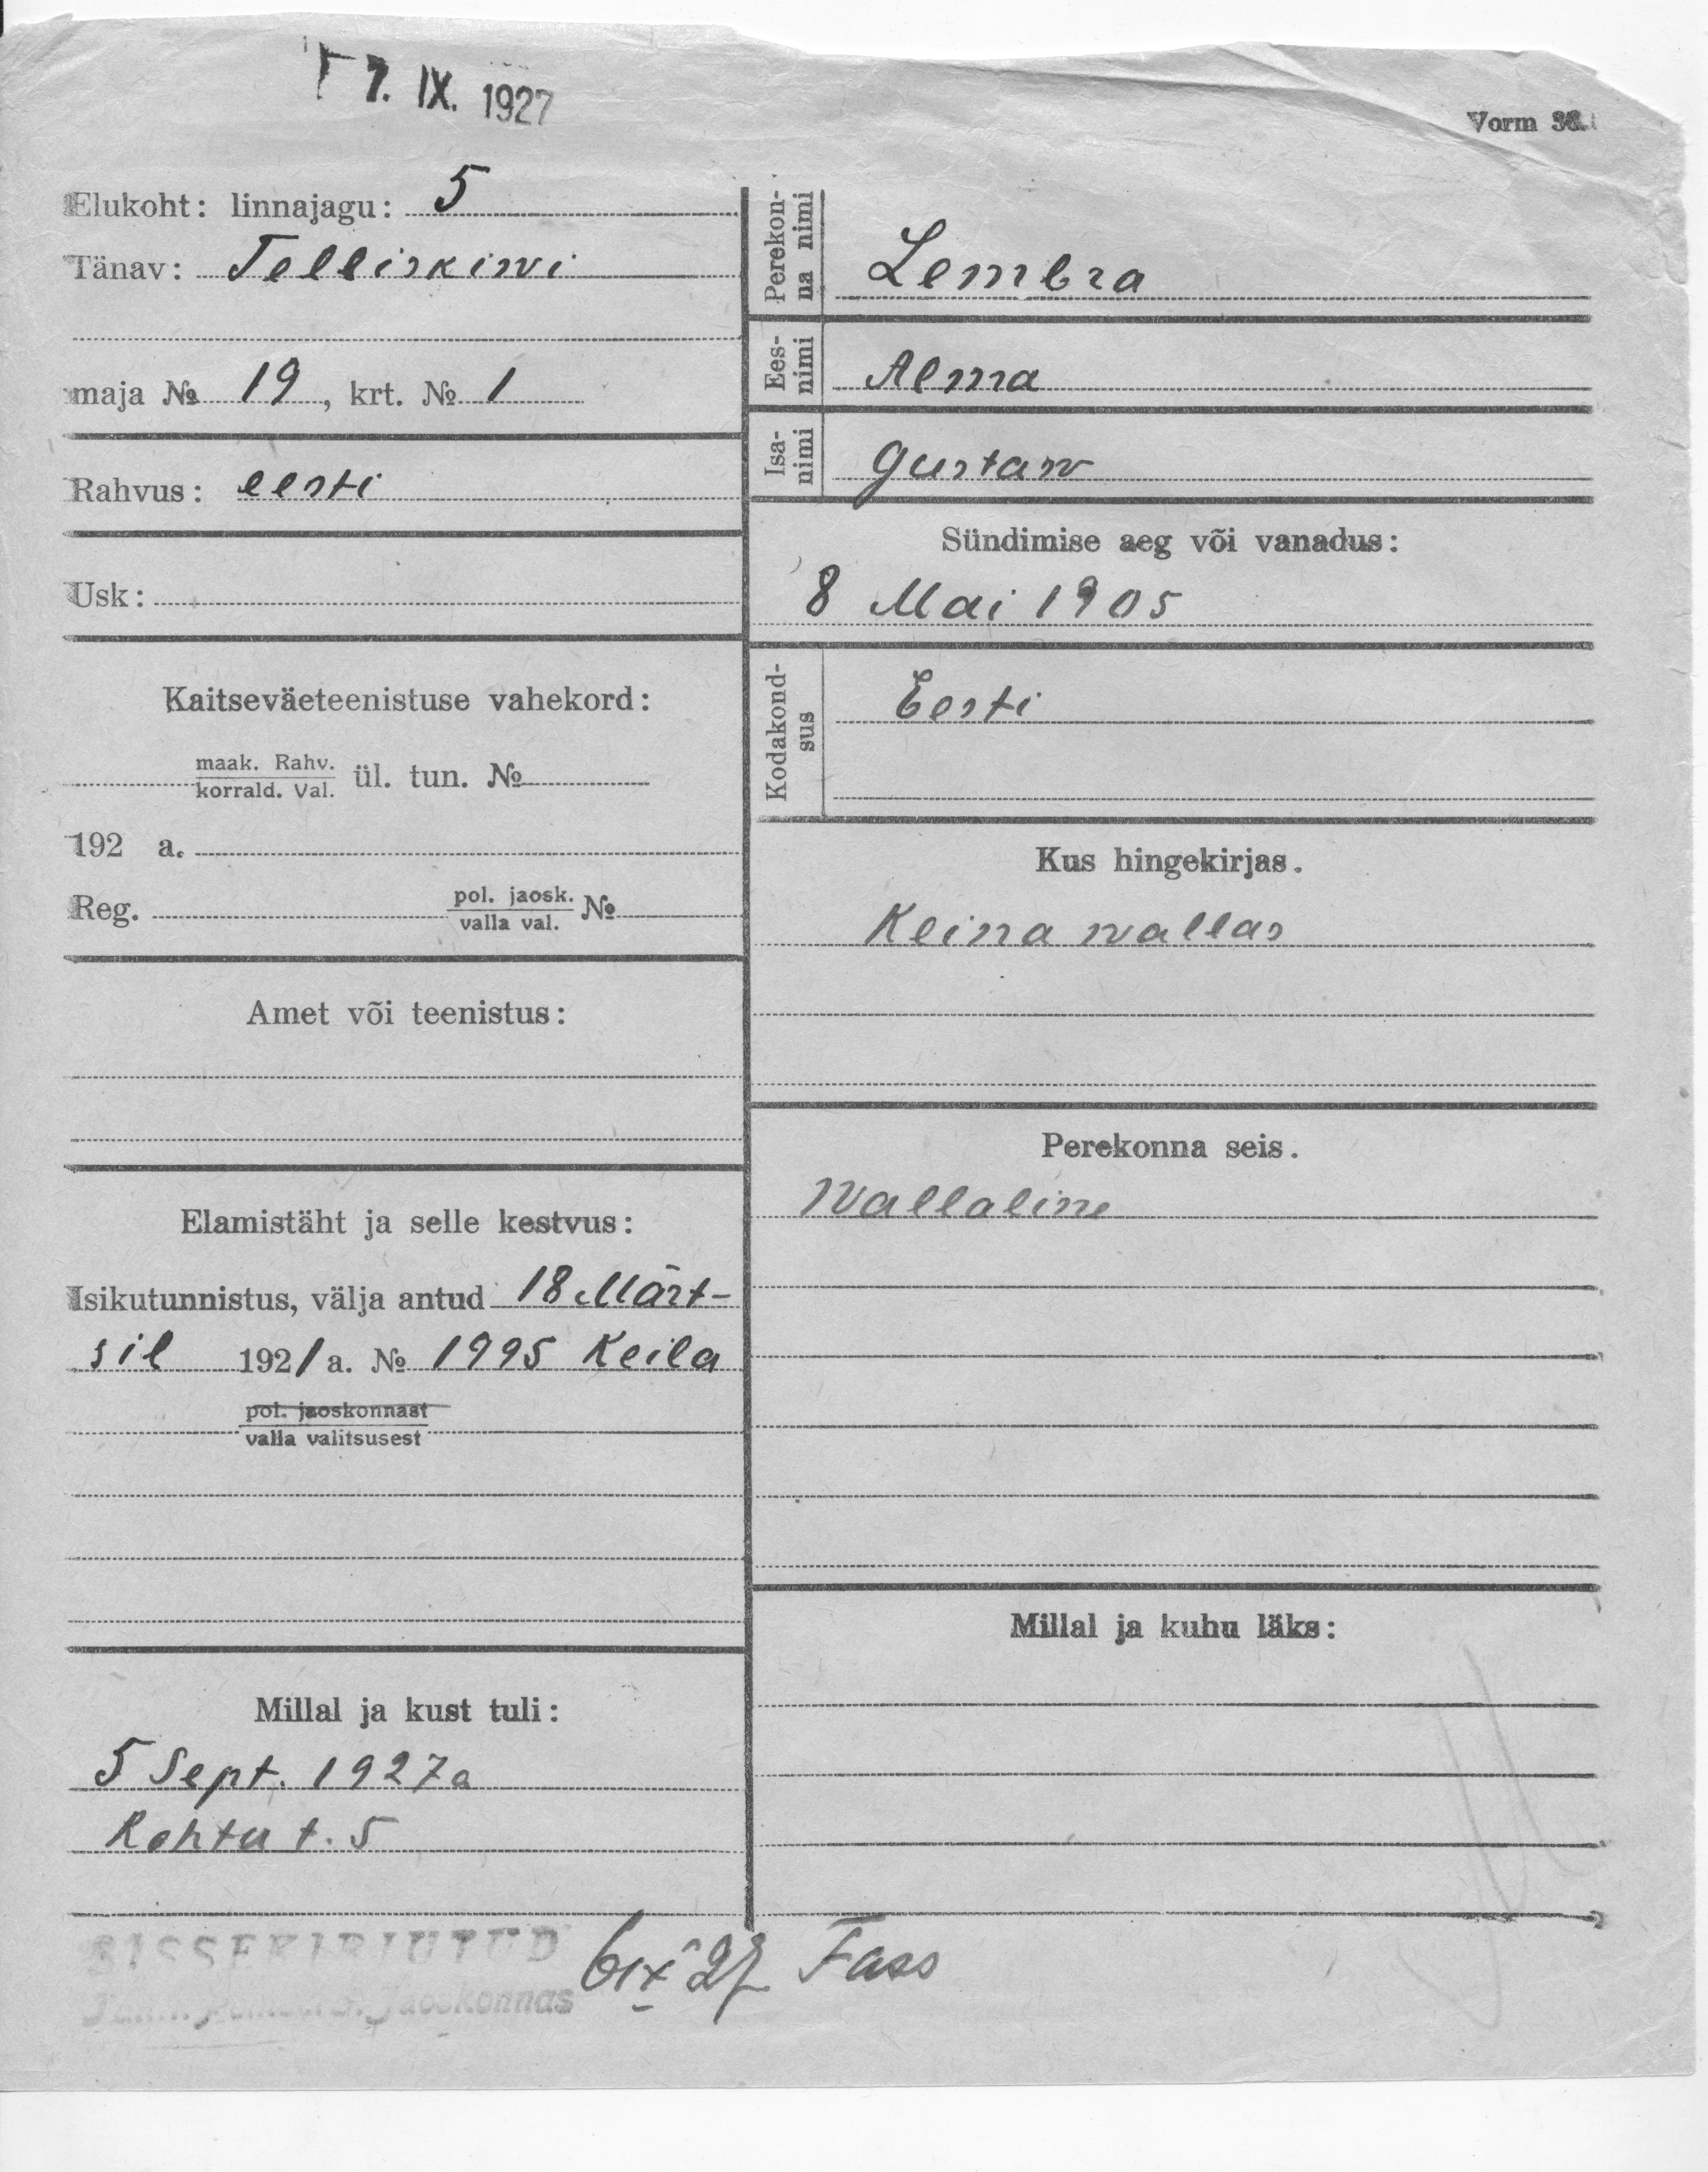 7. IX. 1927
Vorm 36.
Elukoht: linnajagu: 5
Tänav: Telliskiwi
maja № 19, krt. № 1
Rahvus: eesti
Usk:
Kaitseväeteenistuse vahekord:
maak. Rahv.
korrald. Val.
ül. tun. №
192 a.
Reg. pol. jaosk.
valla val. №
Amet või teenistus:
Elamistäht ja selle kestvus:
Isikutunnistus, välja antud 18 Märt-
sil 1921 a. № 1995 Keila
pol. jaoskonnast
valla valitsusest
Millal ja kust tuli:
5 Sept. 1927 a
Rohtu t. 5
Perekon-
na nimi
Lembra
Ees-
nimi
Alma
Isa-
nimi
Gustaw
Sündimise aeg või vanadus:
8 Mai 1905
Kodakond-
sus
Eesti
Kus hingekirjas.
Keina wallas
Perekonna seis.
Wallaline
Millal ja kuhu läks:
SISSEKIRJUTUD
Jaoskonnas
6 IX 27 Fass